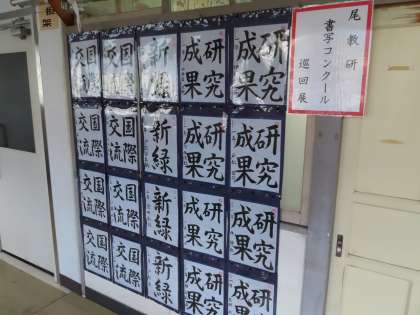 尾教研
書写コンクール
巡回展
研究
成果
研究
成果
新緑
国際
交流
国際
交流
研究
成果
研究
成果
新緑
国際
交流
国際
交流
研究
成果
研究
成果
新緑
国際
交流
国際
交流
研究
成果
研究
成果
新緑
国際
交流
国際
交流